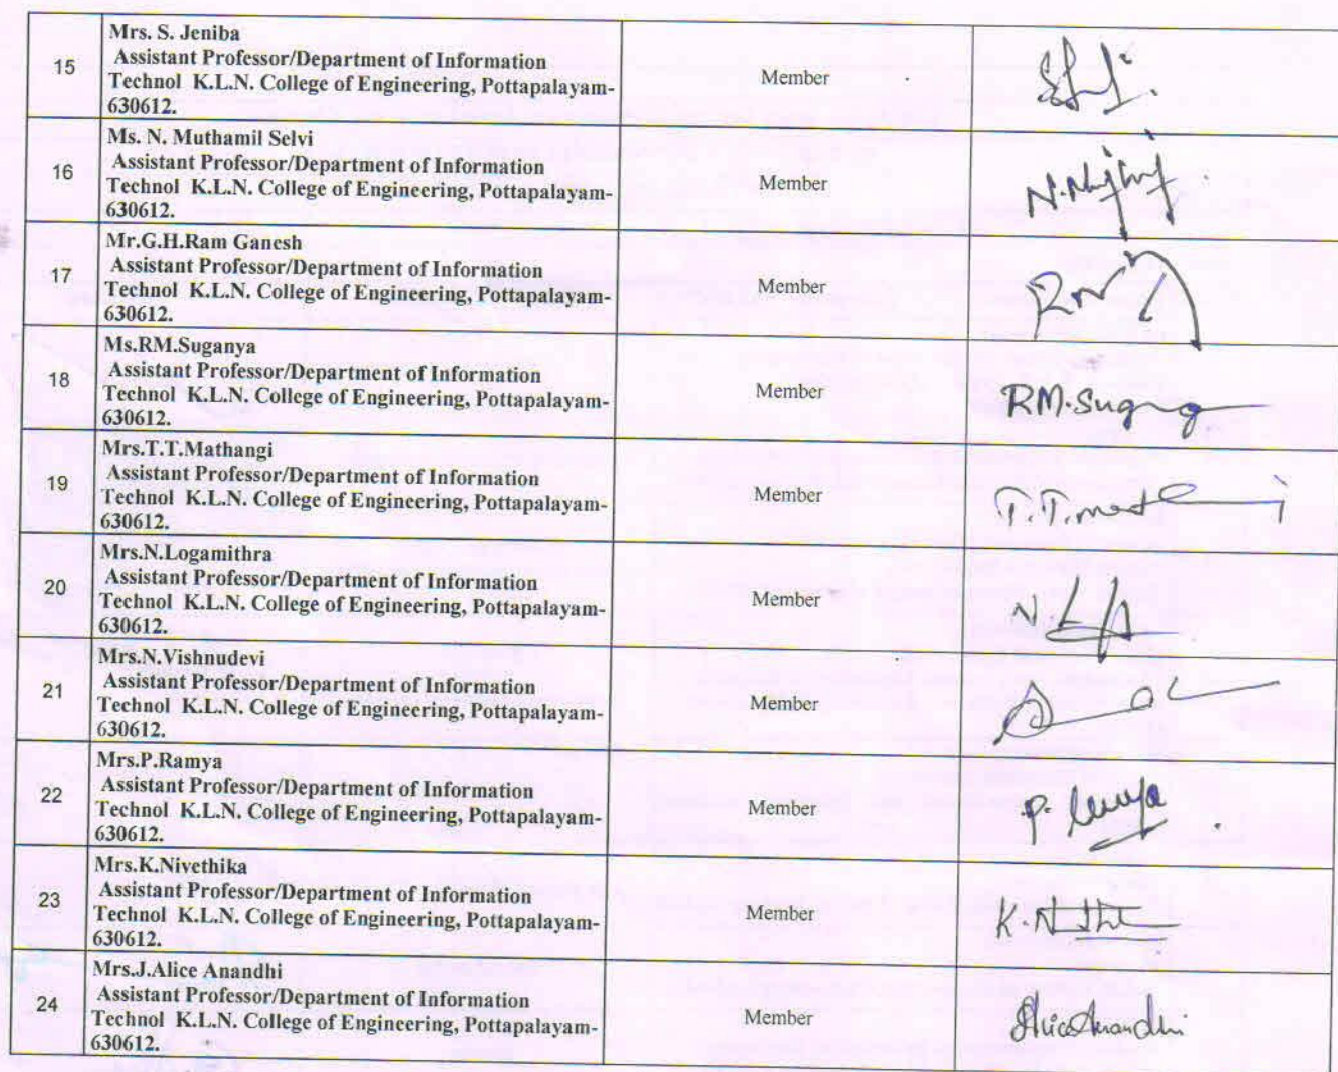 Mrs. S. Jeniba
Assistant Professor/Department of Information
15 Technol K.L.N. College of Engineering, Pottapalayam- Member
630612.
Ms. N. Muthamil Selvi
Assistant Professor/Department of Information
16 Technol K.L.N. College of Engineering, Pottapalayam- Member
630612.
Mr.G.H.Ram Ganesh
Assistant Professor/Department of Information
17 Technol K.L.N. College of Engineering, Pottapalayam- Member
630612.
Ms.RM.Suganya
Assistant Professor/Department of Information
18 Technol K.L.N. College of Engineering, Pottapalayam- Member
630612.
Mrs.T.T.Mathangi
Assistant Professor/Department of Information
19 Technol K.L.N. College of Engineering, Pottapalayam- Member
630612.
Mrs.N.Logamithra
Assistant Professor/Department of Information
20 Technol K.L.N. College of Engineering, Pottapalayam- Member
630612.
Mrs.N.Vishnudevi
Assistant Professor/Department of Information
21 Technol K.L.N. College of Engineering, Pottapalayam- Member
630612.
Mrs.P.Ramya
Assistant Professor/Department of Information
22 Technol K.L.N. College of Engineering, Pottapalayam- Member
630612.
Mrs.K.Nivethika
Assistant Professor/Department of Information
23 Technol K.L.N. College of Engineering, Pottapalayam- Member
630612.
Mrs.J.Alice Anandhi
Assistant Professor/Department of Information
24 Technol K.L.N. College of Engineering, Pottapalayam- Member
630612.